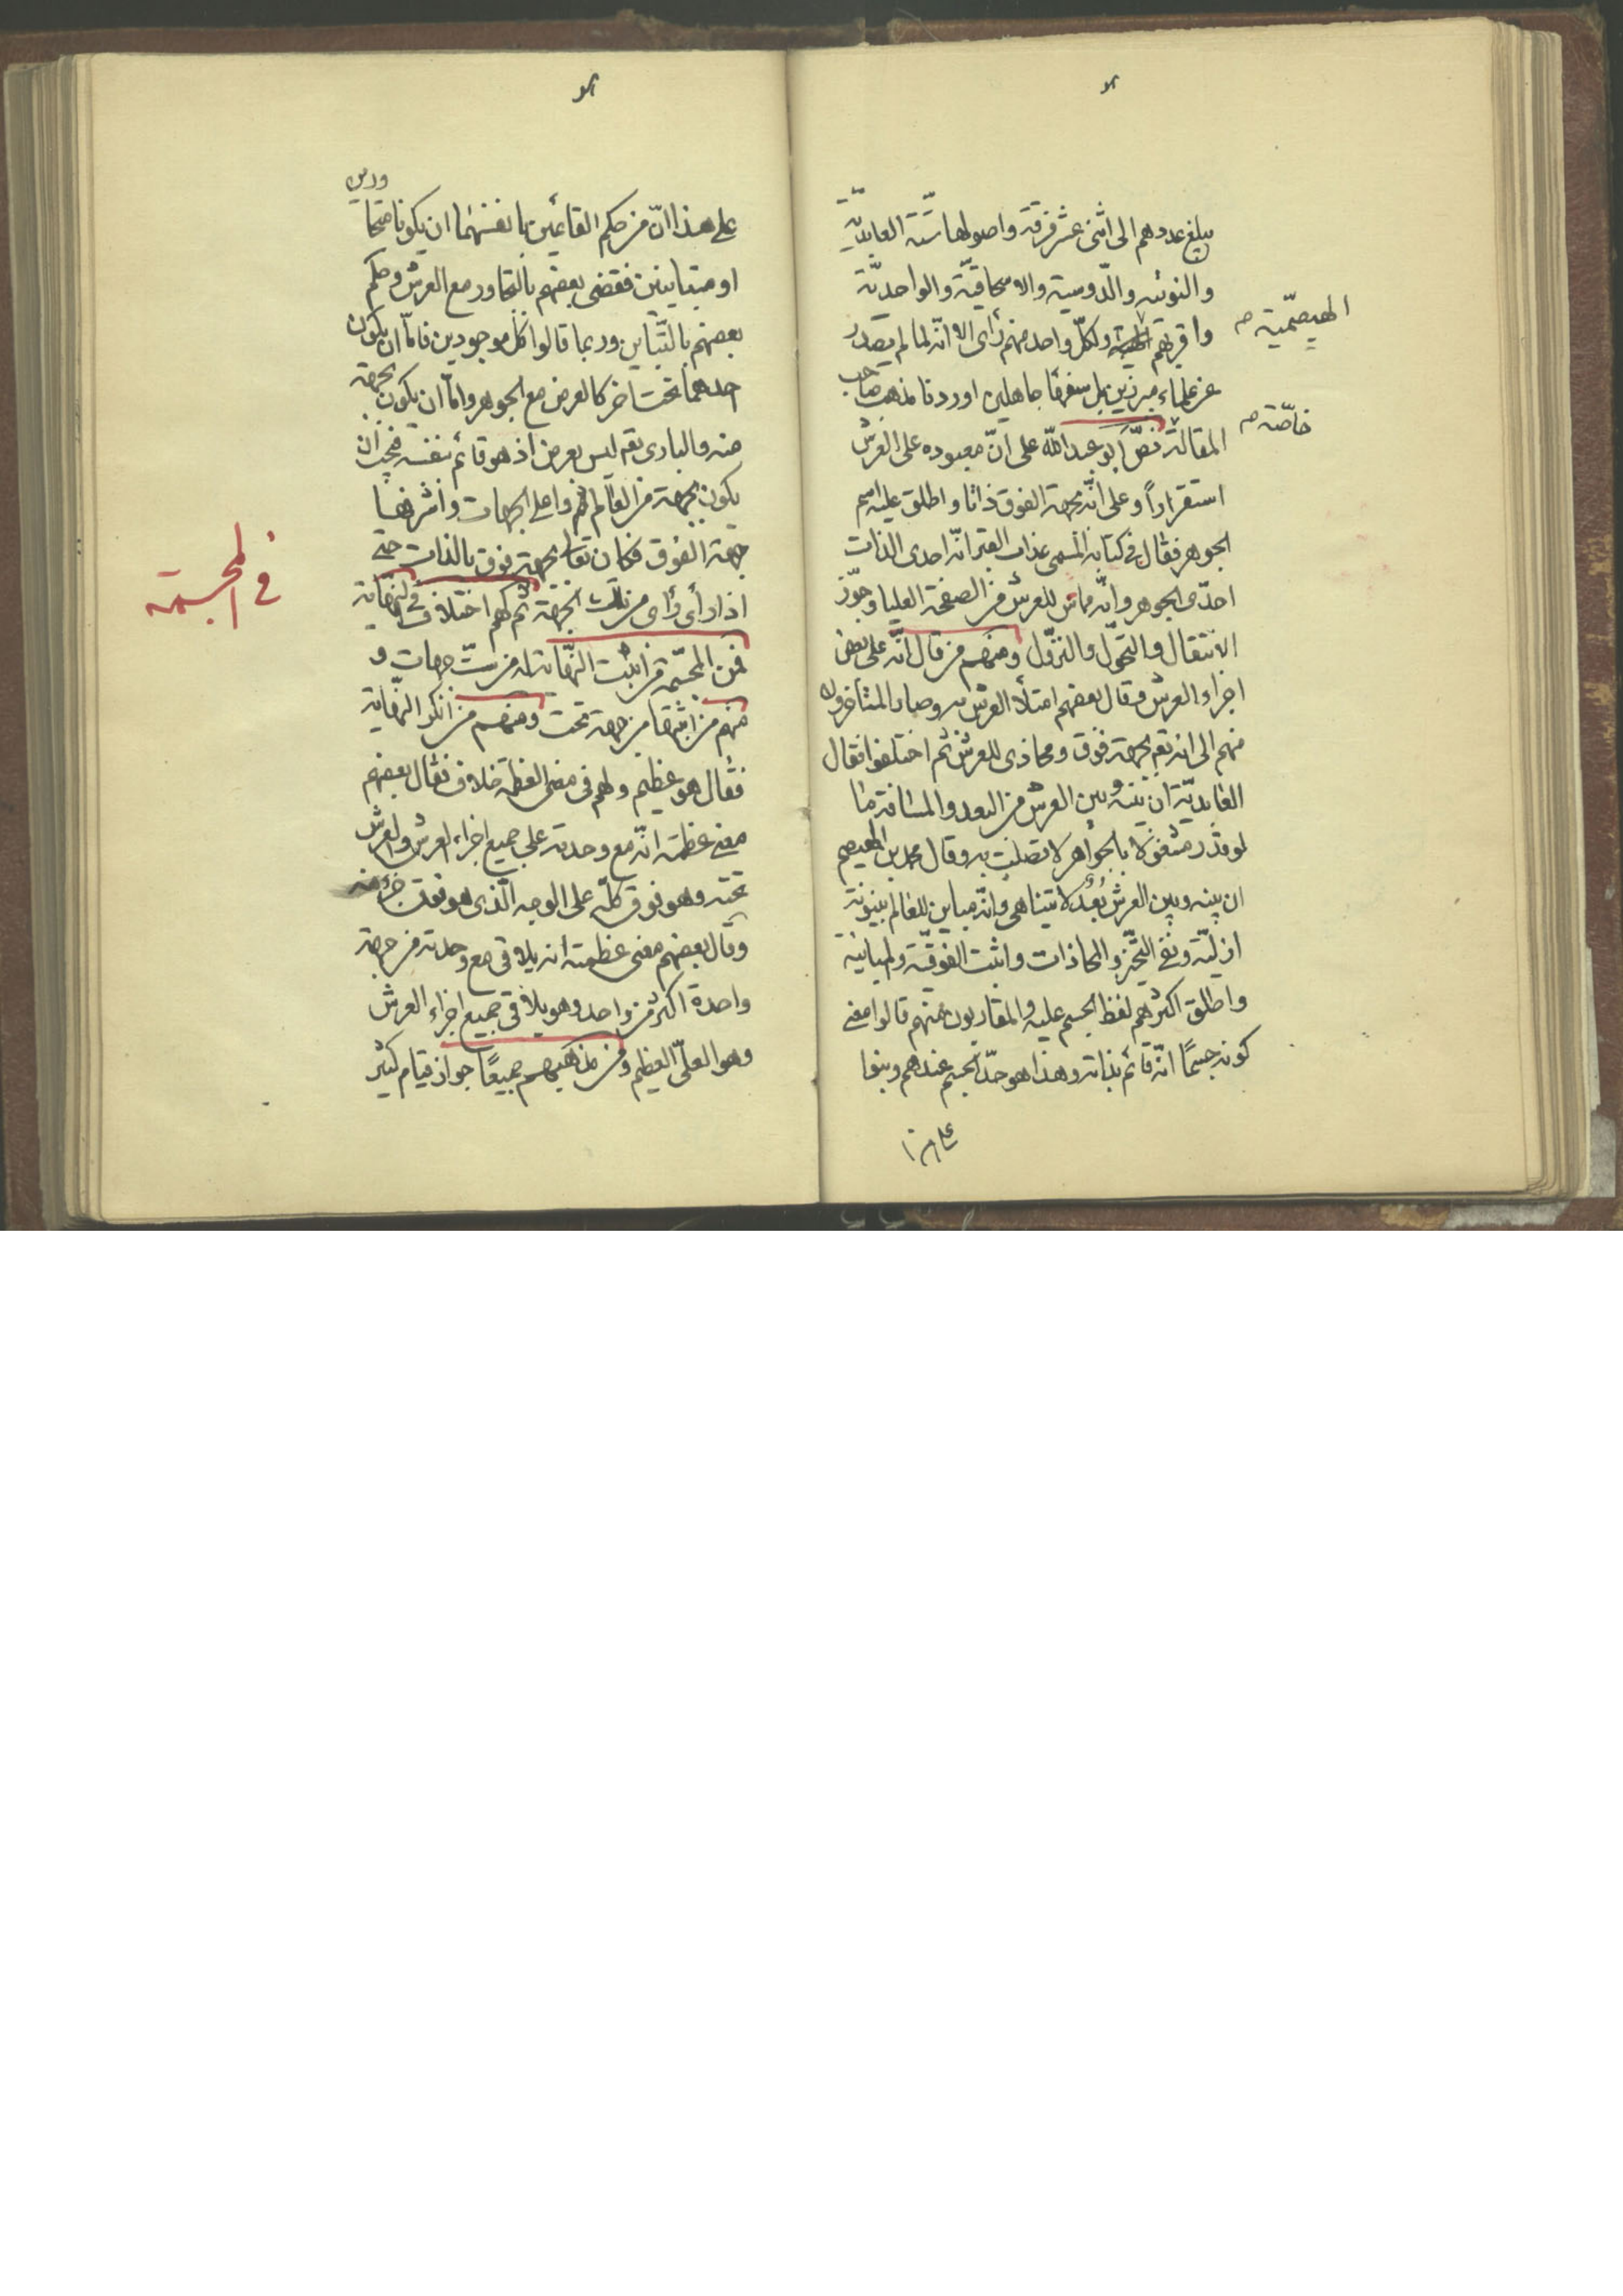 يبلغ عددهم الى اثنى عشر فرقة واصولها ستة العابدية
والنونية والدوسية والاسحاقية والواحدية
واقربهم ولكل واحد منهم رأى الا انه لما لم يصدر
الهيصمية صح
عن علماء مبرزين بل سفها جاهلين اوردنا مذهب صاحب
المقالة نص ابو عبد الله على ان معبوده على العرش
خاصة صح
استقراراً وعلى انه بجهة الفوق ذاتا واطلق عليه اسم
الجوهر فقال في كتابه المسمى عذاب القبر انه احدى الذات
احدى الجوهر وانه مماس للعرش من الصفحة العليا وجوز
الانتقال والتحول والنزول ومنهم من قال انه على بعض
اجزاء العرش وقال بعضهم امتلأ العرش به وصار المتأخرون
منهم الى انه تع بجهة فوق ومحاذى للعرش ثم اختلفوا فقال
العابدية ان بينه وبين العرش من البعد والمسافة ما
لو قدر مشغولا بالجواهر لاتصلت به وقال محمد بن الهيصم
ان بينه وبين العرش بُعد لا يتناهى وانه مباين للعالم بينونة
ازلية ونفى التحيز والمحاذات واثبت الفوقية والمباينة
واطلق اكثرهم لفظ الجسم عليه والمقاربون منهم قالوا معنى
كونه جسمًا انه قائم بذاته وهذا هو حد الجسم عندهم وبنوا
على هذا
على هذا ان من حكم القائمين بانفسهما ان يكونا متجاورين
او متباينين فقضى بعضهم بالتجاور مع العرش وحكم
بعضهم بالتباين وربما قالوا كل موجودين فاما ان يكون
احدهما تحت اخر كالعرض مع الجوهر واما ان يكون بجهة
منه والبارى تع ليس بعرض اذ هو قائم بنفسه فيجب ان
يكون بجهة من العالم ثم واعلى الجهات واشرفها
جهة الفوق فكان تعالى بجهة فوق بالذات حتى
اذا رأى رأى من تلك الجهة ثم لهم اختلاف في النهاية
فمن المجسمة من اثبت النهاية له من ست جهات و
في المجسمة
منهم من اثبتها من جهة تحت ومنهم من انكر النهاية
فقال هو عظيم ولهم في معنى العظمة خلاف فقال بعضهم
معنى عظمته انه مع وحدته على جميع اجزاء العرش والعرش
تحته وهو فوق كله على الوجه الذى هو فوق جزء منه
وقال بعضهم معنى عظمته انه يلاقى مع وحدته من جهة
واحدة اكثر من واحد وهو يلاقى جميع اجزاء العرش
وهو العلى العظيم ومن مذهبهم جميعًا جواز قيام كثير